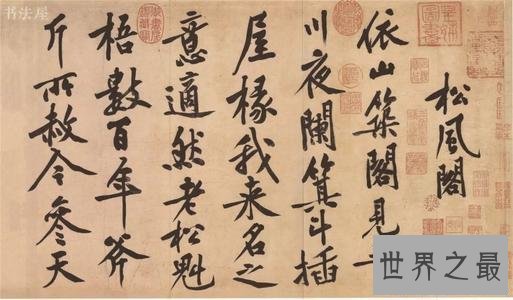 松風閣
依山築閣見
川夜闌箕斗插
屋椽我來名之
意適然老松魁
梧數百年斧
斤所赦令參天
书法屋
世界之最